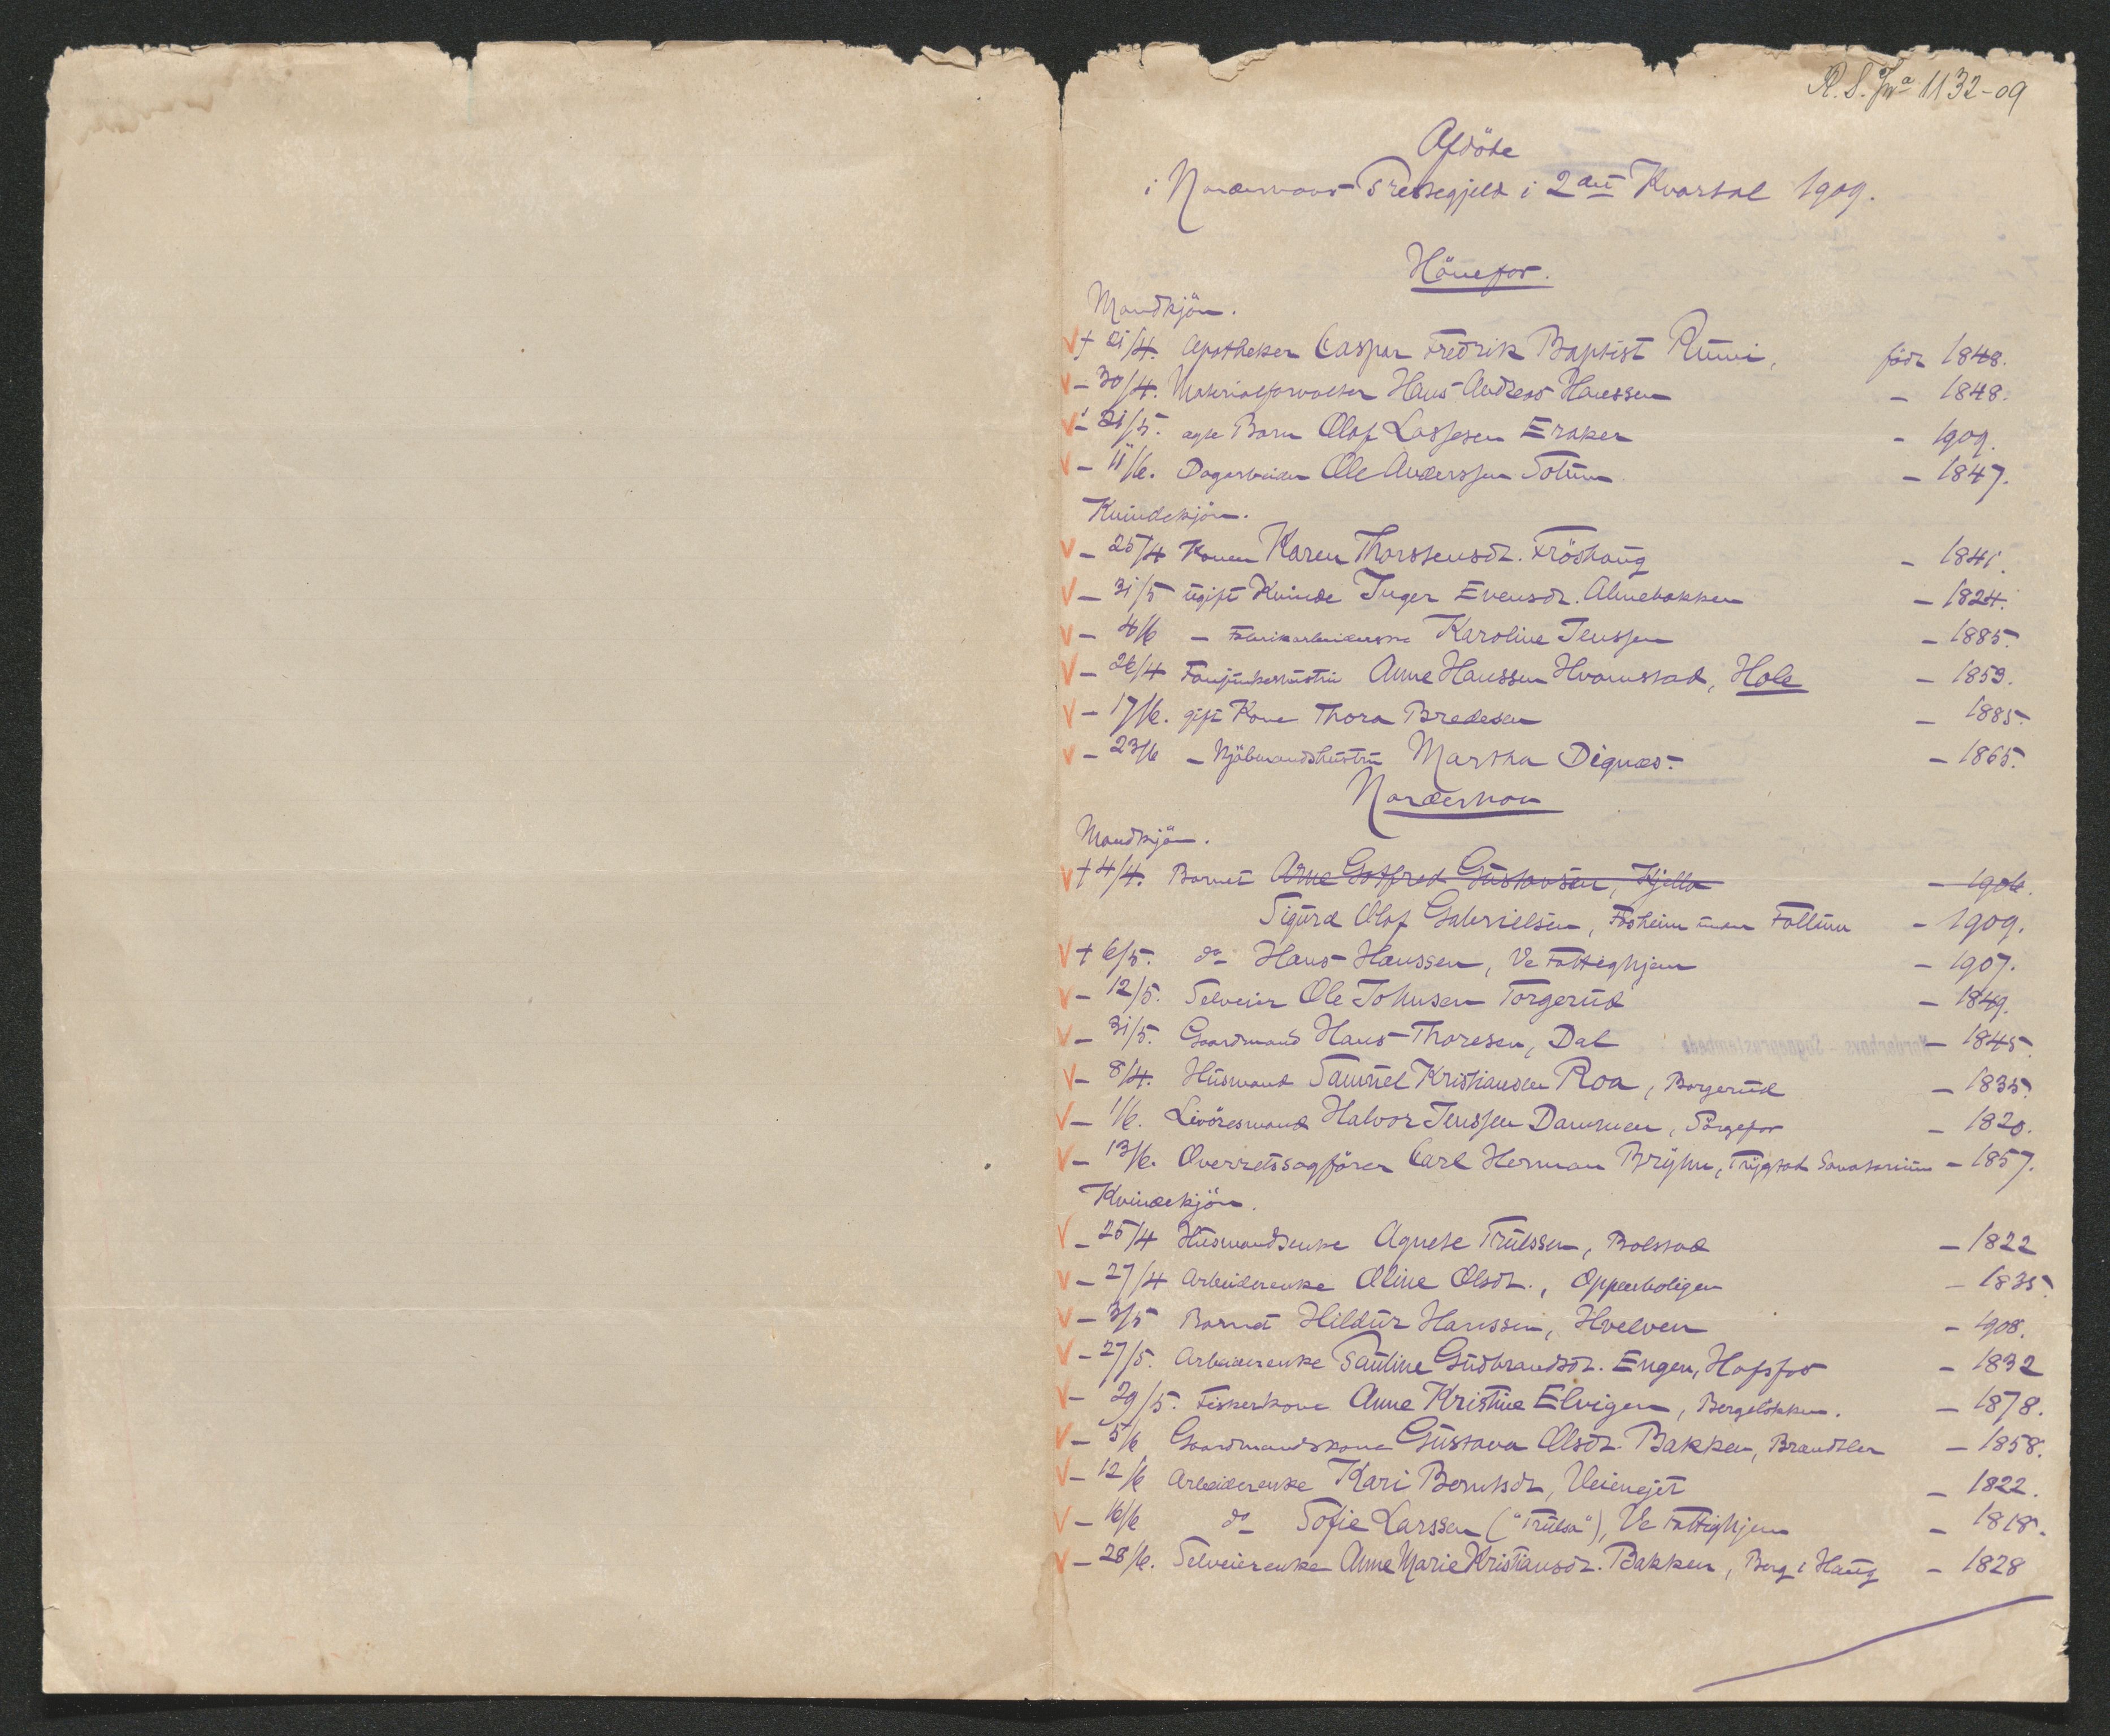 R. S. No 1132-09
Afdöde
i Norderhovs Prestegjeld i 2det Kvartal 1909.
Hönefos.
Mandkjön.
† 21/4. Apotheker Caspar Fredrik Baptist Rumi, född 1848.
- 30/4. Materialforvalter Hans Andreas Hanssen - 1848.
- 21/5. ægte Barn Olaf Lassesen Eraker - 1909.
- 11/6. Dagarbeider Ole Anderssen Totum - 1847.
Kvindekjön.
- 25/4 Konen Karen Thorstensdr. Fröshaug - 1841.
- 31/5 ugift Kvinde Inger Evensdr. Almebakken - 1824.
- 4/6 - Fabrikarbeiderske Karoline Jenssen - 1885.
- 26/4 Fanejunkerhustru Anne Hanssen Hvamstad, Hole - 1859.
- 17/6. gift Kone Thora Bredesen - 1885.
- 23/6 - Kjöbmandshustru Martha Dignæs. - 1865.
Norderhov
Mandkjön.
† 4/4. Barnet Arne Gotfred Gustavsen, Kjella - 1906.
Sigurd Olaf Gabrielsen, Fosheim under Follum - 1909.
† 6/5. do Hans Hanssen, Ve Fattighjem - 1907.
- 12/5. Selveier Ole Johnsen Torgerud - 1849.
- 31/5. Gaardmand Hans Thoresen, Dal - 1845.
- 8/4. Husmand Samuel Kristiansen Roa, Borgerud - 1835.
- 1/6. Livöresmand Halvor Jenssen Dammen, Sørgefos - 1820.
- 13/6. Overretssagfører Carl Herman Bryhn, Trygstad Sanatorium - 1857.
Kvindekjön.
- 25/4 Husmandsenke Agnete Trulssen, Bolstad - 1822
- 27/4 Arbeiderenke Oline Olsdr., Oppenboligen - 1835.
- 3/5 Barnet Hildur Hanssen, Hvelven - 1908.
- 27/5. Arbeiderenke Pauline Gudbrandsdr. Engen, Hofsfos - 1832
- 29/5. Fiskerkone Anne Kristine Elvigen, Bergeløkken. - 1878.
- 5/6 Gaardmandskone Gustava Olsdr. Bakken, - 1858.
- 12/6 Arbeiderenke Kari Berntsdr, Veienejet - 1822.
- 16/6 do Sofie Larssen ("Trulsa"), Ve Fattighjem - 1818.
- 28/6. Selveierenke Anne Marie Kristiansdr. Bakken, Berg i Haug - 1828